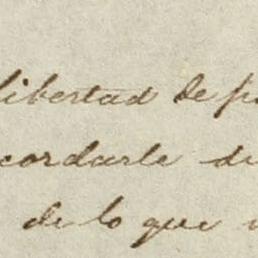 libertad de p
cordarle di
de lo que